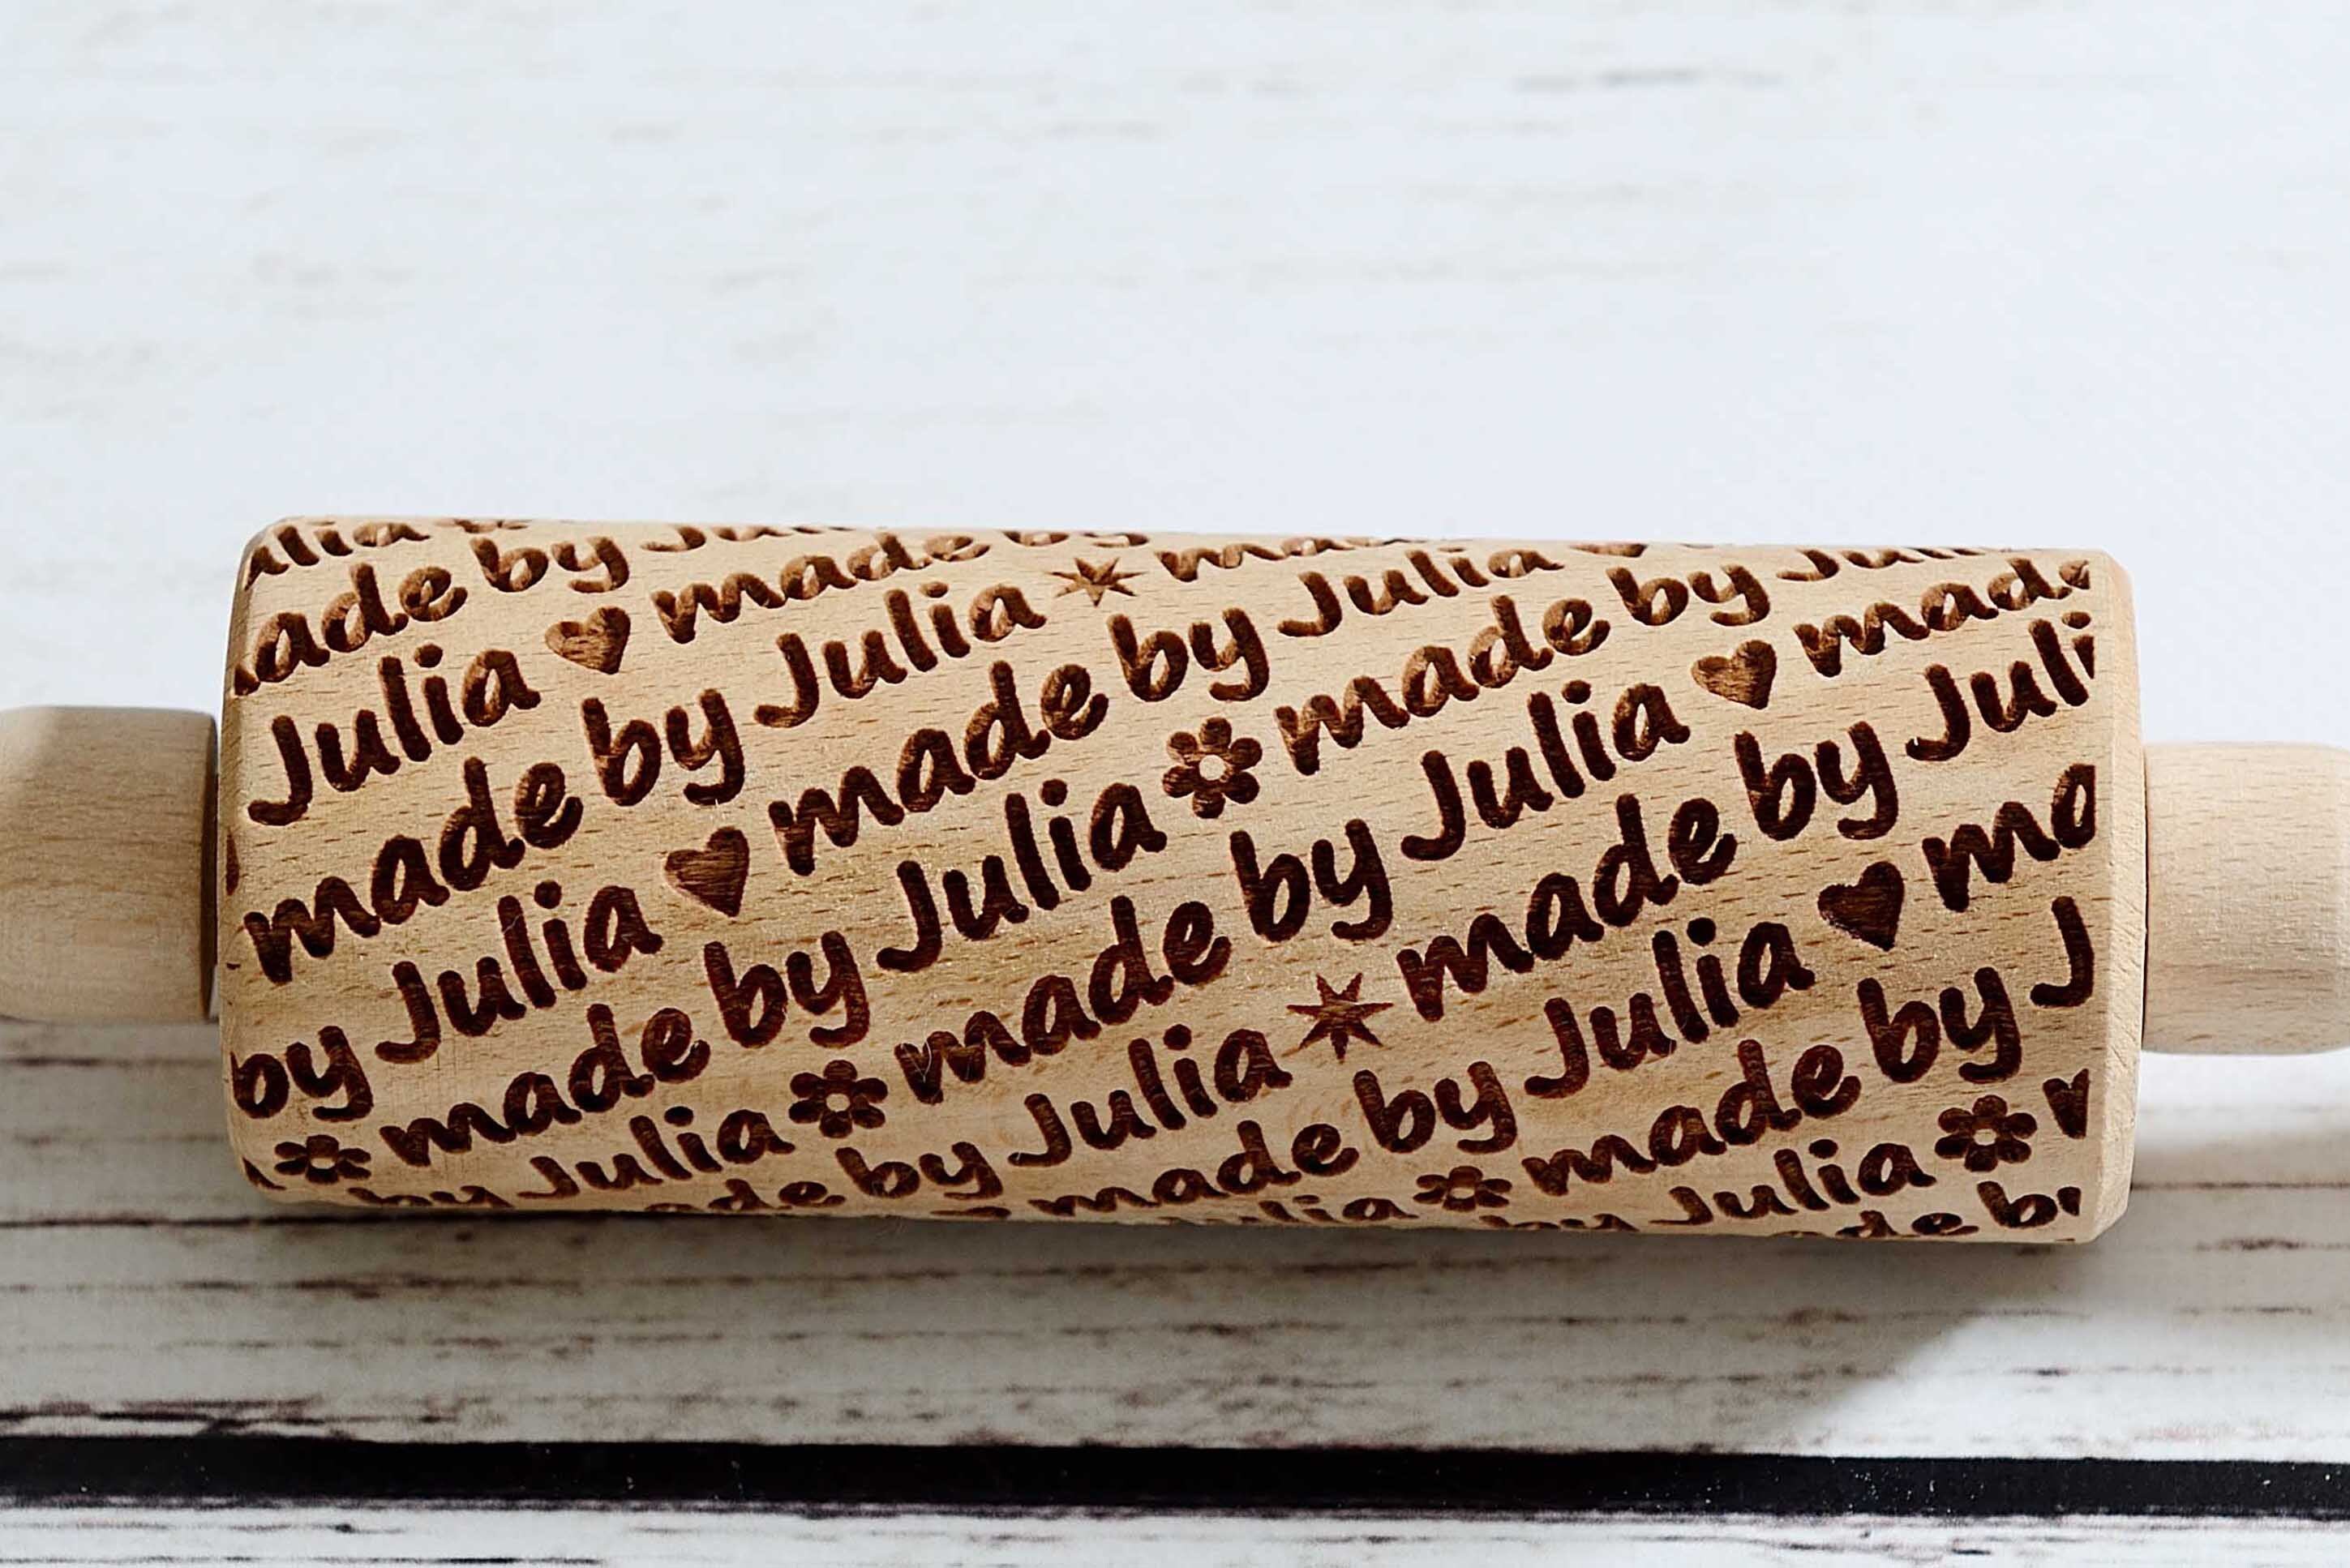 ade by
Julia ♥ made by
made by Julia ✶ made
by Julia ♥ made by Julia
made by Julia ✿ made by
by Julia ✿ made by Julia ♥ made
made by Julia ✶ made by Juli
made by Julia ♥ ma
Julia ✿ made by J
by Julia ✿
ade b